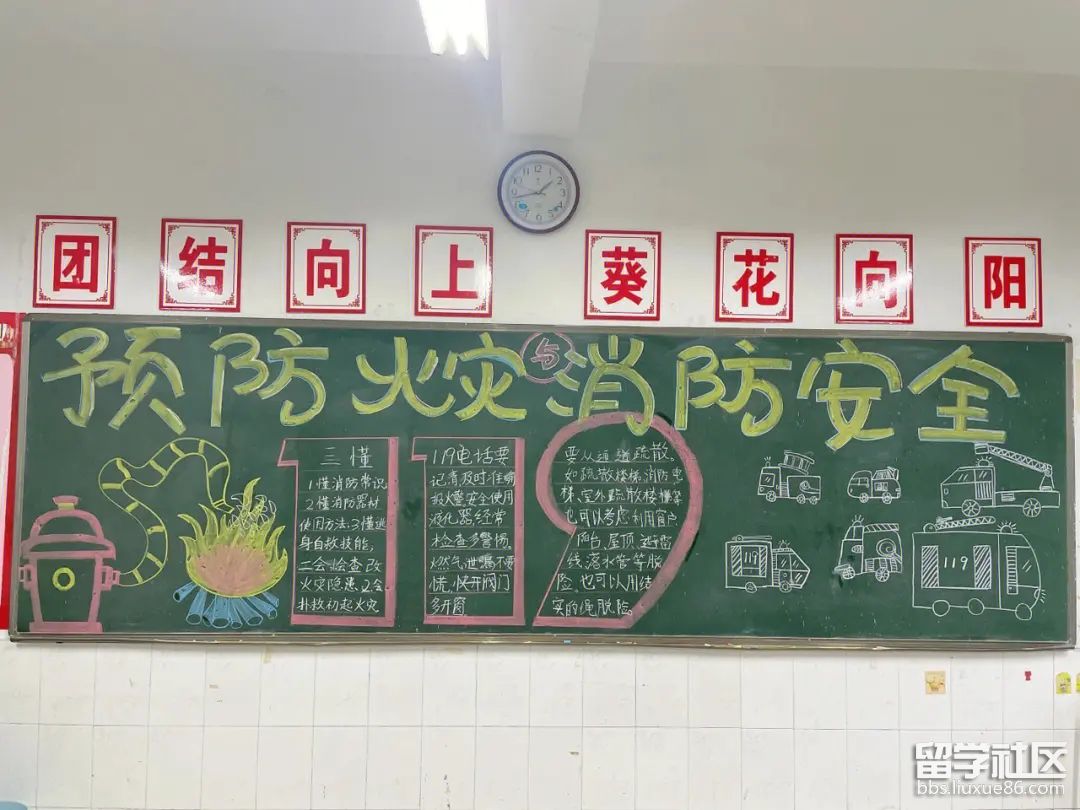 团结向上 葵花向阳
预防火灾与消防安全
三懂
1懂消防常识
2懂消防器材
使用方法,3懂逃
身自救技能,
二会1会查改
火灾隐患,2会
扑救初起火灾
119电话要
记清及时准确
报火警安全使用
液化器,经常
检查多警惕。
燃气泄曝不要
慌,快开阀门
多开窗
要从通道疏散,
如疏散楼梯,消防电
梯,室外疏散楼梯等
也可以考虑利用窗户
阳台,屋顶,避雷
线,落水管等脱
险。也可以用结
实的绳脱险。
119
119
119
留学社区
bbs.liuxue86.com